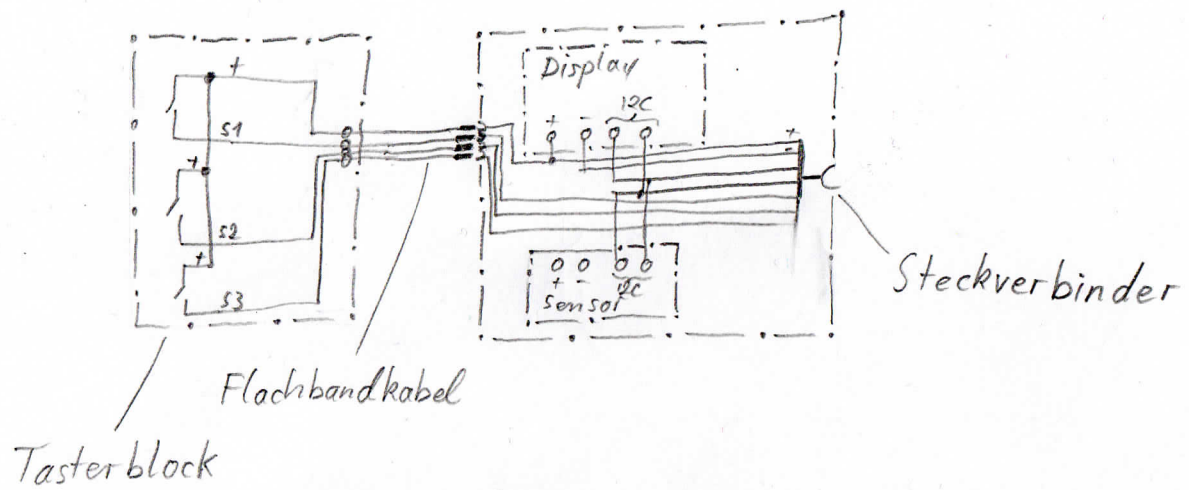 +
S1
+
S2
+
S3
Display
I2C
+ -
+
-
+ -
I2C
Sensor
Steckverbinder
Flachbandkabel
Tasterblock